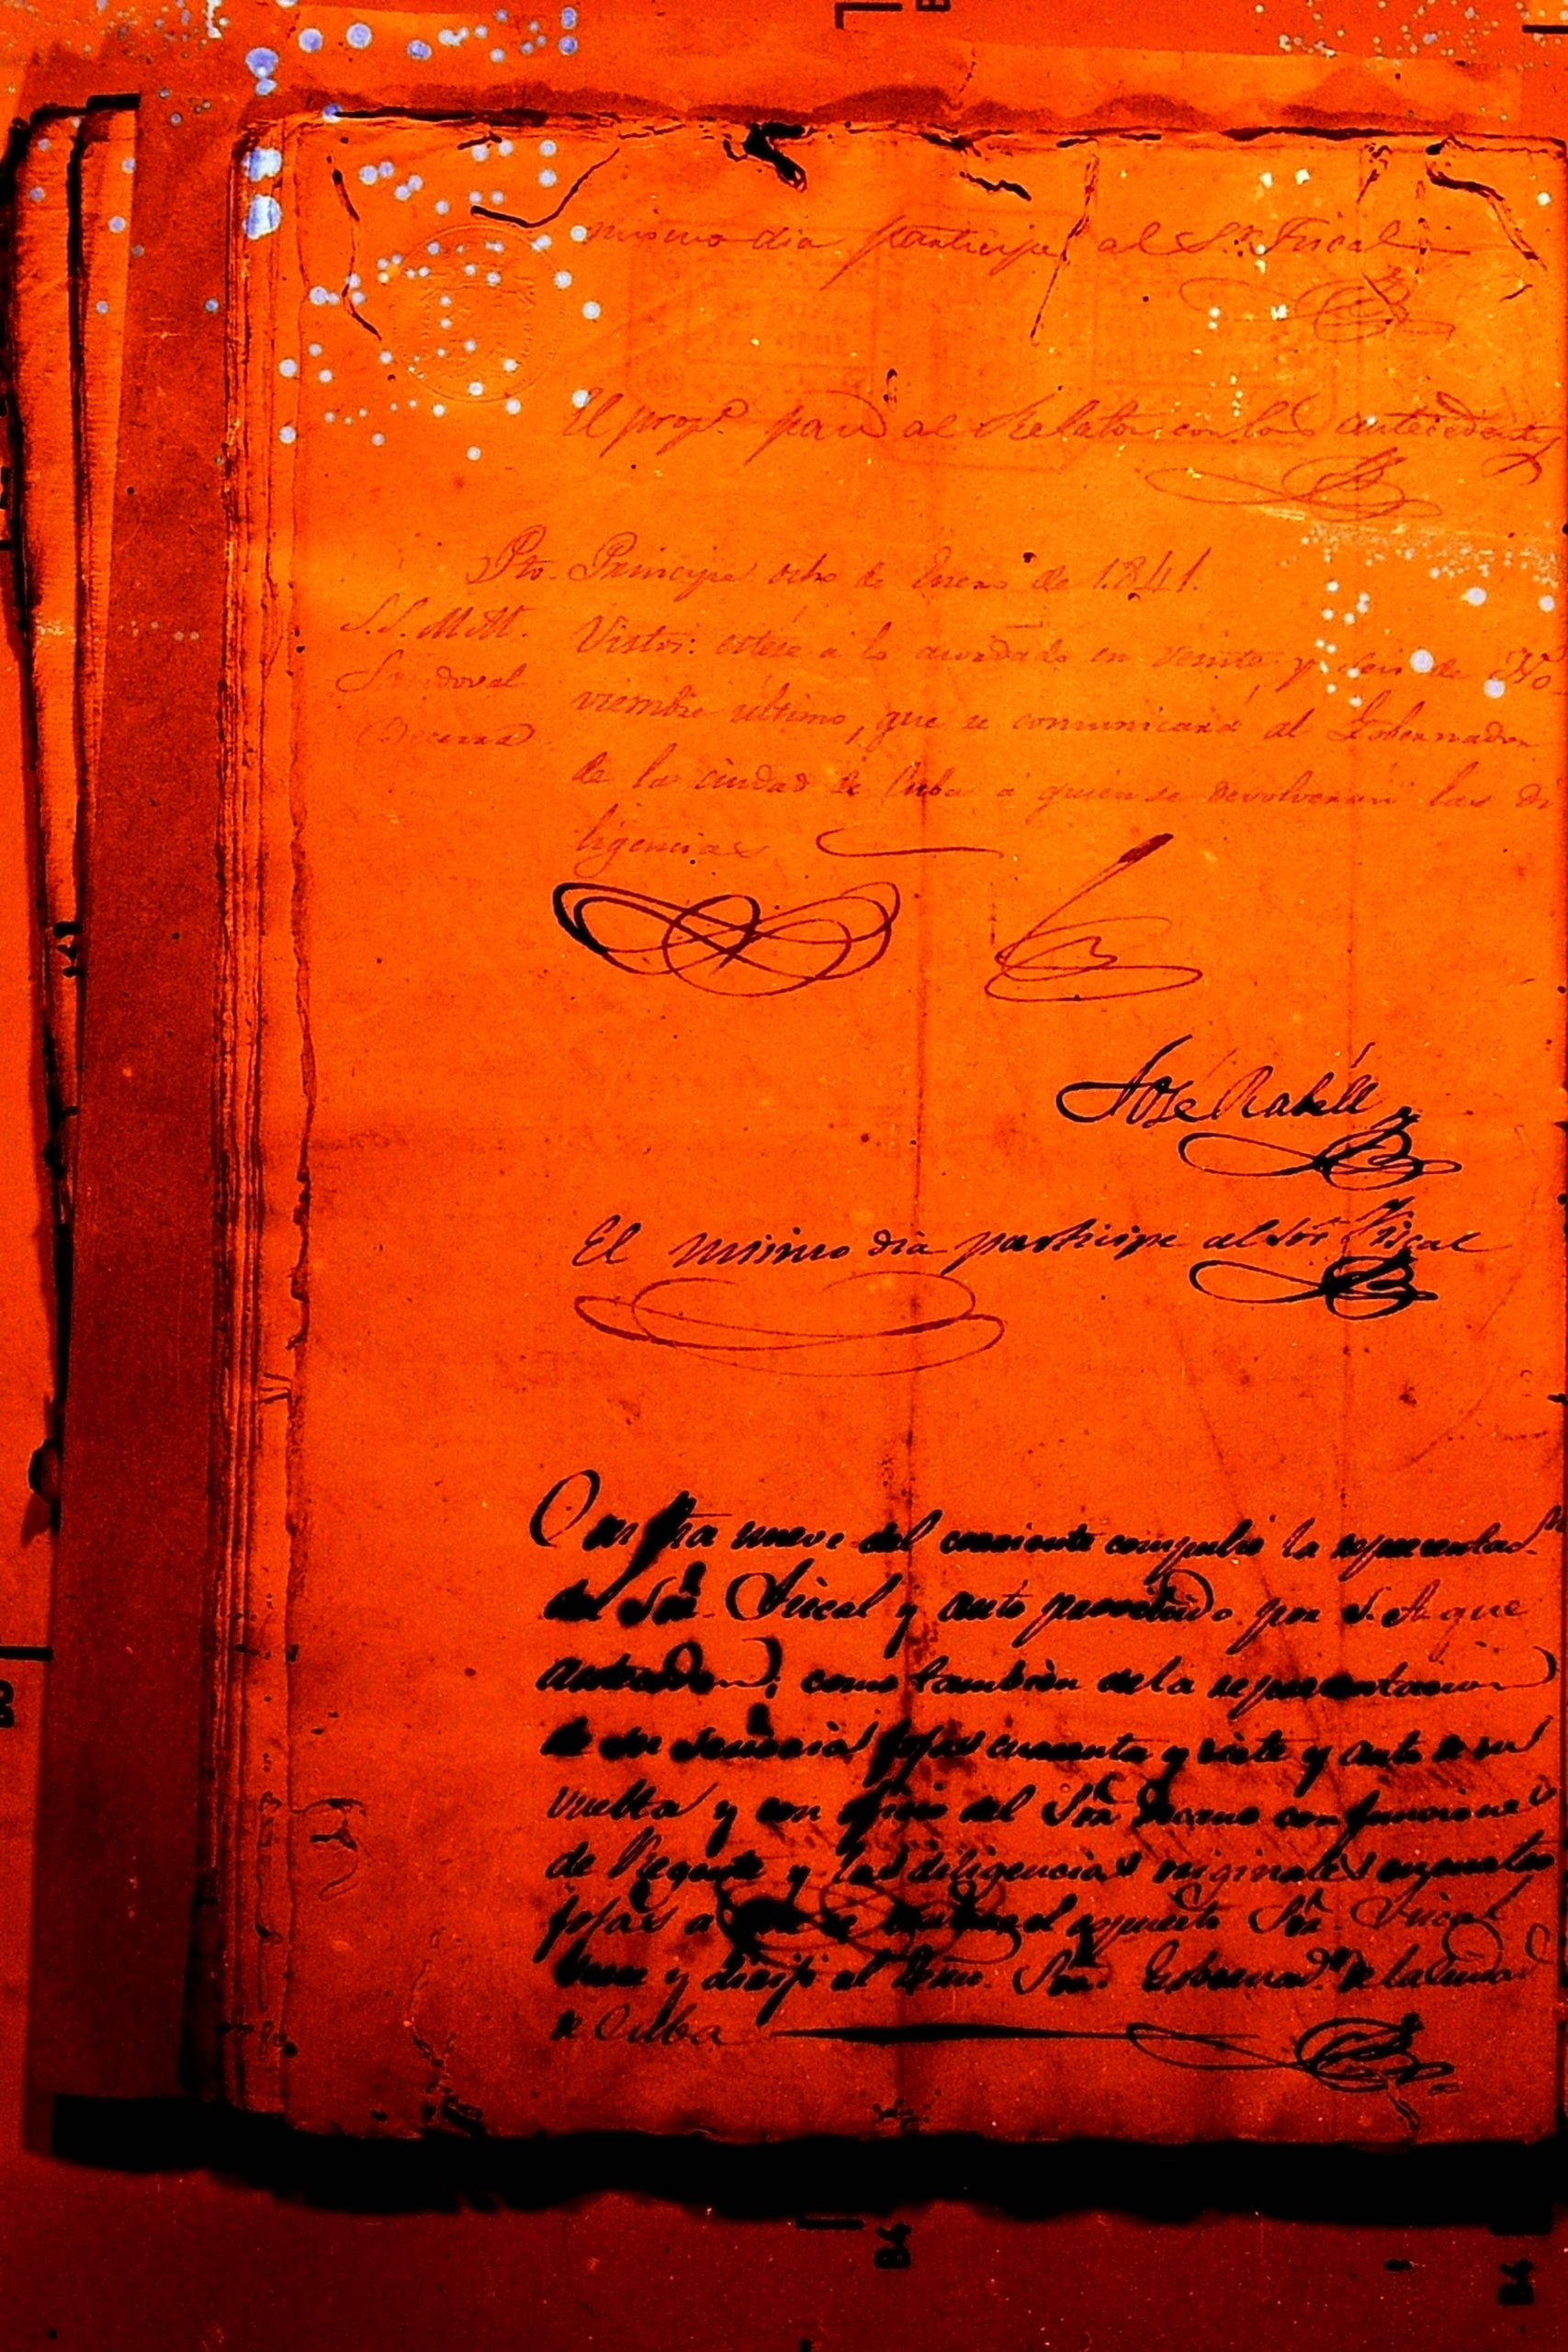 mismo dia participé al Sr. Fiscal
El propo. pasó al Relator con los antecedentes
Pto. Principe ocho de Enero de 1841.
S.S. M.M.
Sandoval
Becerra
Vistos: estése á lo acordado en veinte y seis de No
viembre último, que se comunicará al Gobernador
de la ciudad de Cuba á quien se devolverán las di
ligencias
José Rabell
El mismo dia participe al Sor. Fiscal
nueve del corriente compulse la representac.
del Sor. Fiscal y auto proveido por S. A. que
anteceden; como tambien de la representacion
de su Señoria fojas cuarenta y siete y auto de su
vuelta y con oficio del Sor. Decano con funciones
de Regente y las diligencias originales en
fojas a el espuesto Sor. Fiscal
y dirijí al Exmo. Sor. Gobernador. de la ciudad
de Cuba
B4
B4